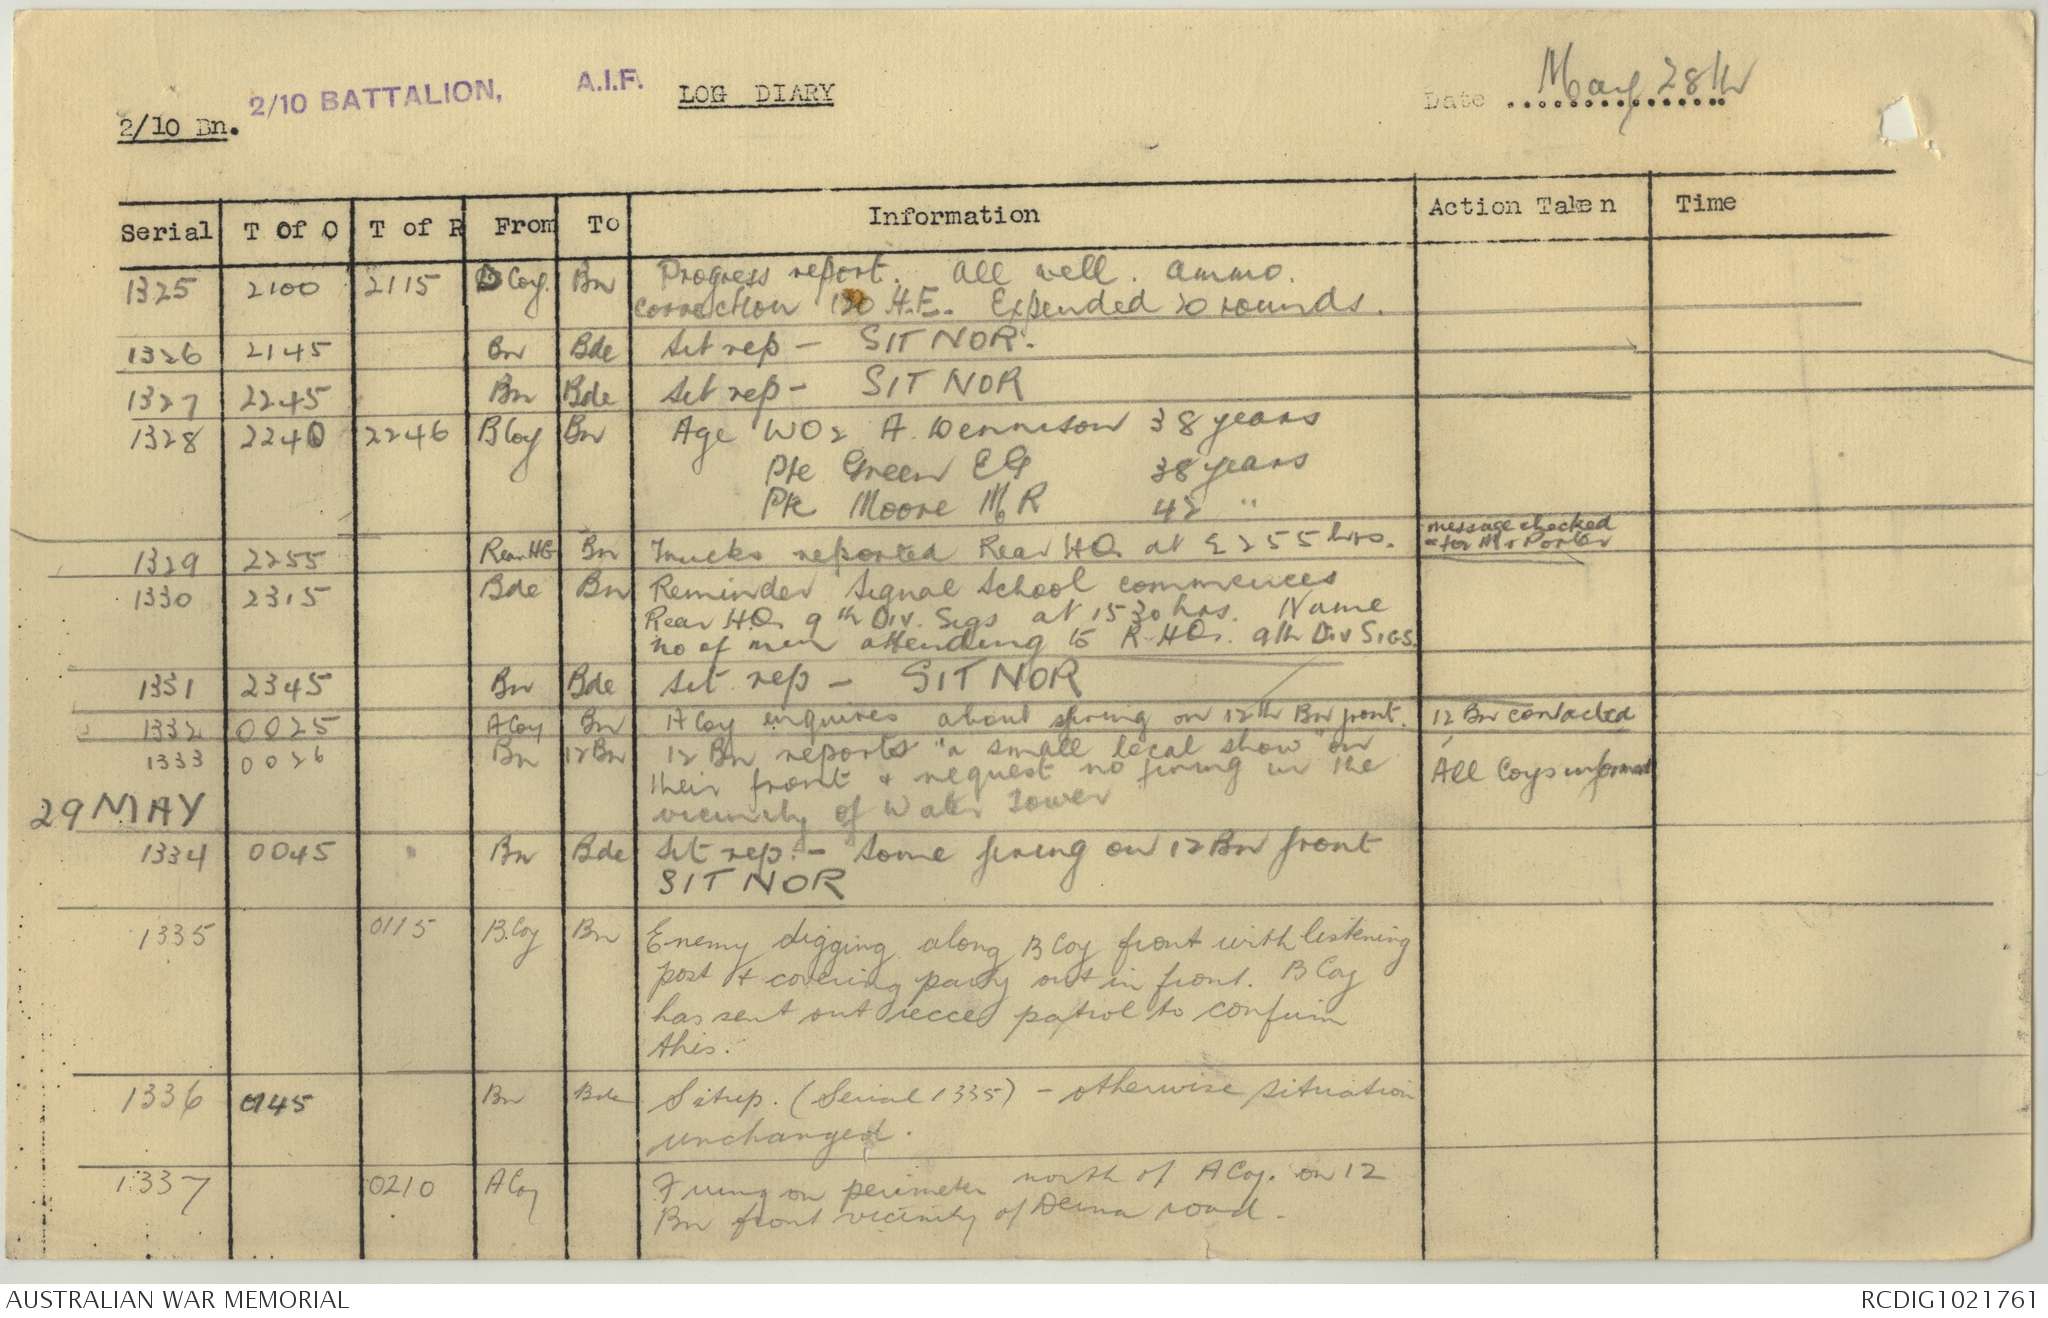 2/10 BATTALION, A.I.F. LOG DIARY Date May 28th
2/10 Bn.
Serial T Of O T of R From To Information Action Taken Time
1325 2100 2115 D Coy. Bn Progress report. All well. ammo.
correction 120 H.E. Expended 20 rounds.
1326 2145 Bn Bde Sit rep - SIT NOR.
1327 2245 Bn Bde Sit rep - SIT NOR
1328 2240 2246 B Coy Bn Age WO2 A. Dennison 38 years
Pte Green EG 38 years
Pte Moore M R 42 "
1329 2255 Rear HQ Bn Trucks reported Rear HQ at 2255 hrs. message checked
for Mr Porter
1330 2315 Bde Bn Reminder Signal School commences
Rear H.Q. 9th Div. Sigs at 1530 hrs. Name
no of men attending to R-HQ. 9th Div SIGS.
1331 2345 Bn Bde Sit. rep - SIT NOR
1332 0025 A Coy Bn A Coy enquires about firing on 12th Bn front. 12 Bn contacted
1333 0026 Bn 12 Bn 12 Bn reports "a small local show" on
their front & request no firing in the All Coys informed
vicinity of Water Tower
29 MAY
1334 0045 Bn Bde Sit rep. - Some firing on 12 Bn front
SIT NOR
1335 0115 B.Coy Bn Enemy digging along B Coy front with listening
post & covering party out in front. B Coy
has sent out recce patrol to confirm
this.
1336 0145 Bn Bde Sitrep. (Serial 1335) - otherwise situation
unchanged.
1337 0210 A Coy Firing on perimeter north of A Coy. on 12
Bn front vicinity of Derna road.
AUSTRALIAN WAR MEMORIAL RCDIG1021761